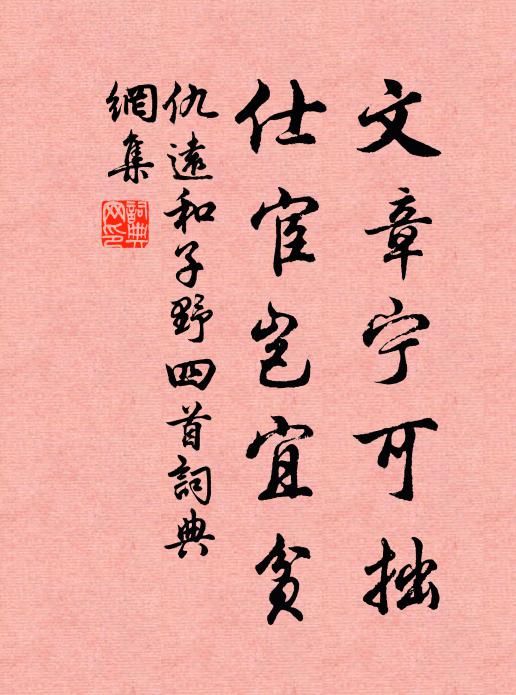 文章宁可拙
仕宦岂宜贫
仇遠和子野四首詞典
網集
詞典網印